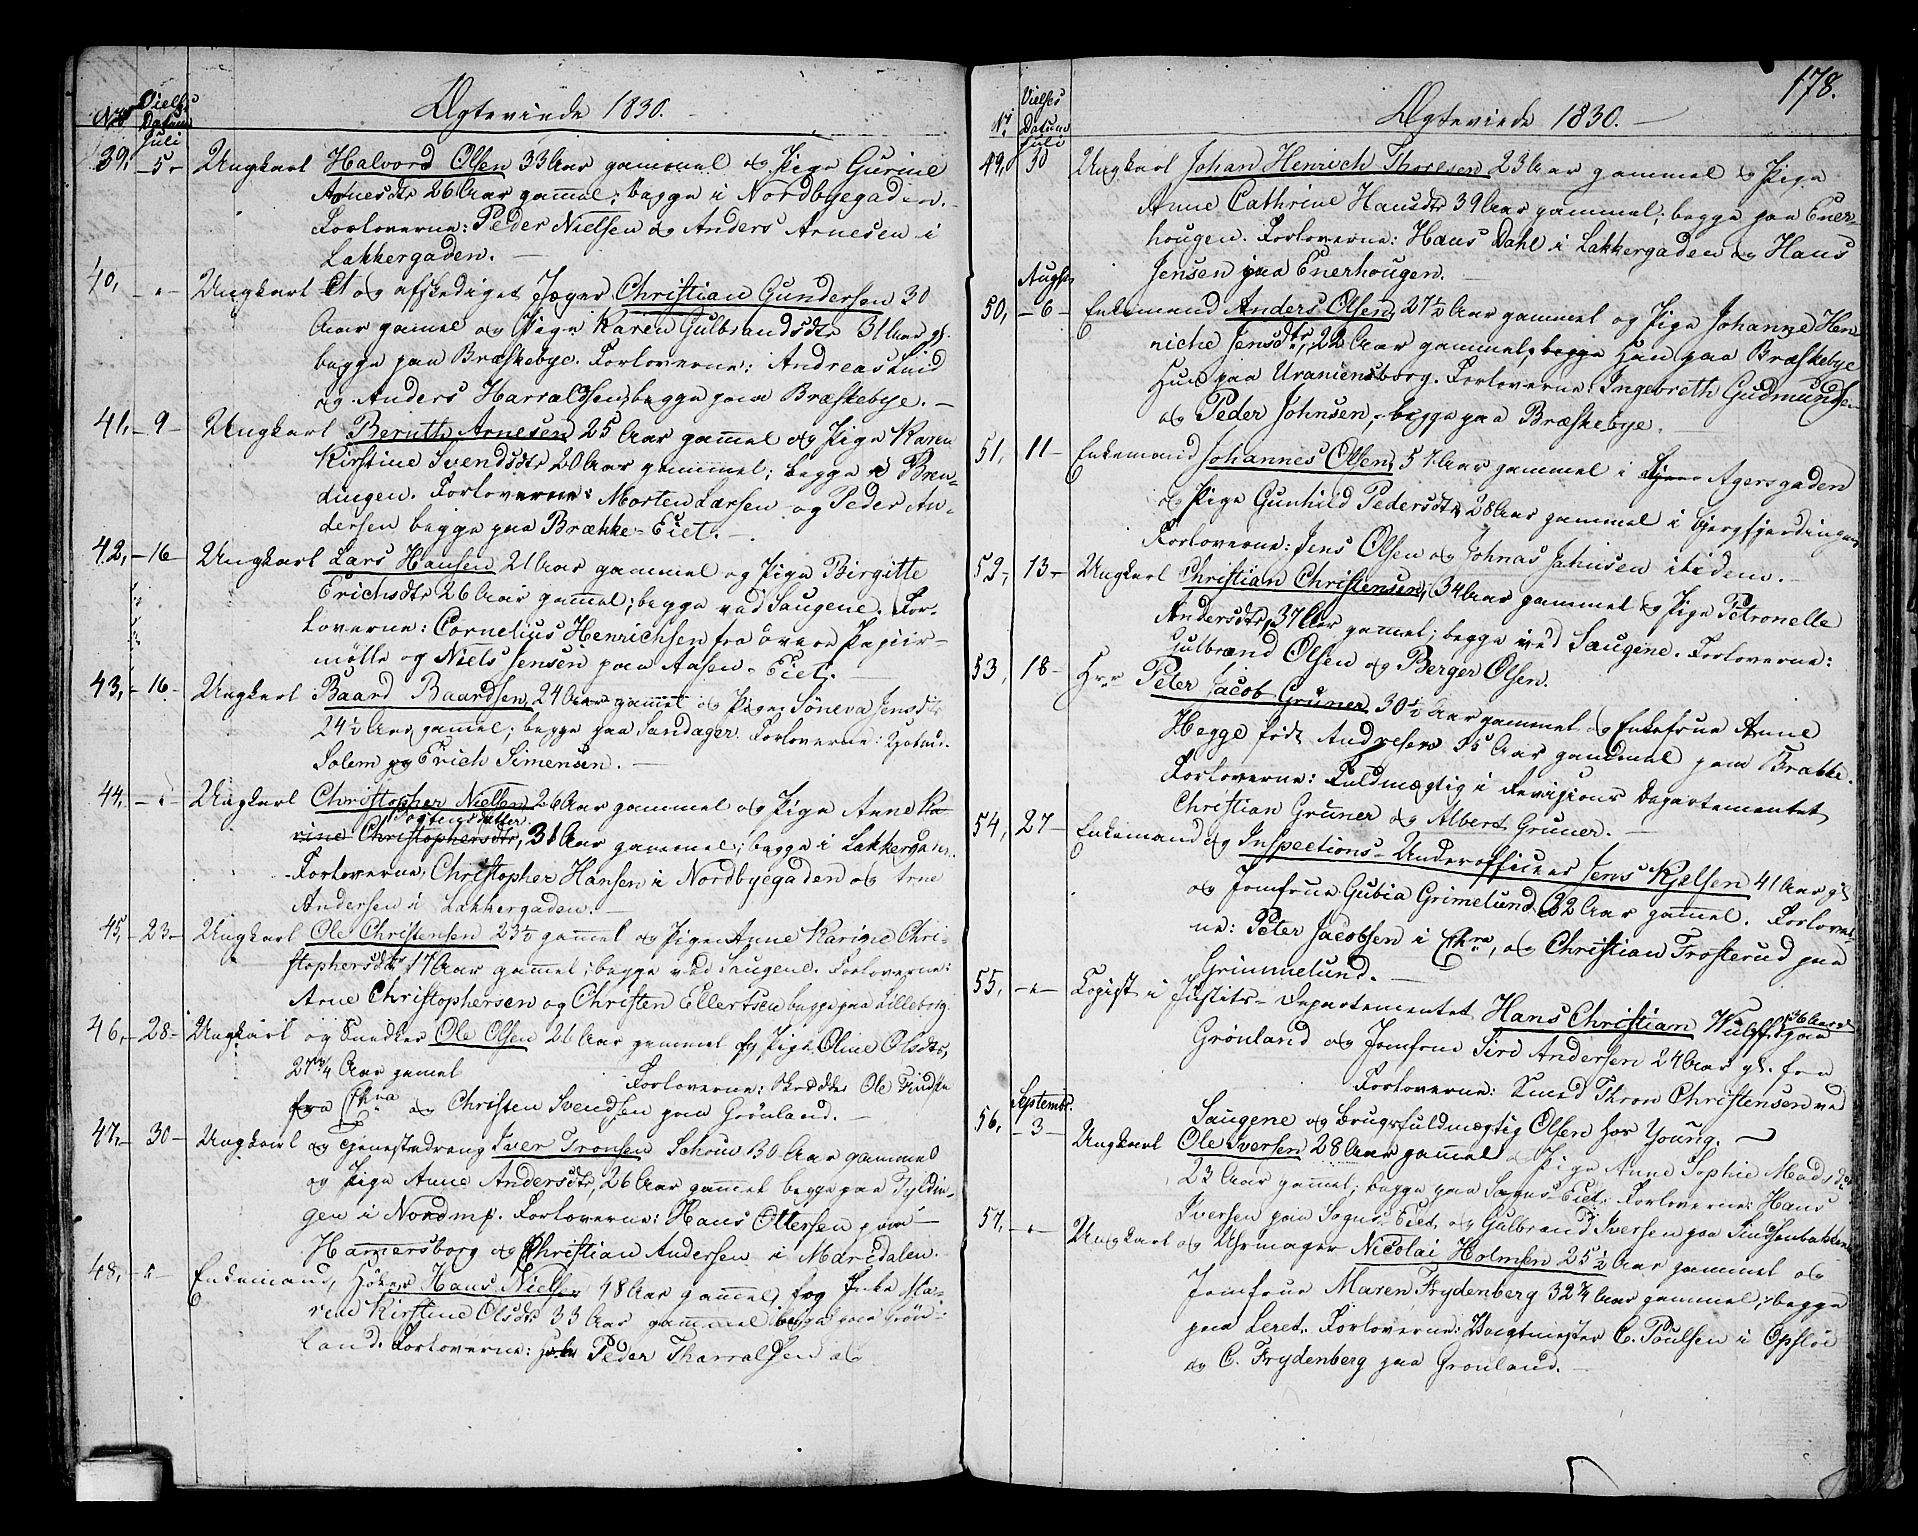 Ægteviede 1830.
Nr Vielses Datum
Juli
39, 5 Ungkarl Halvord Olsen 33 Aar gammel og Pige Gurine
Arnesdtr 26 Aar gammel; begge i Nordbyegaden.
Forloverne: Peder Nielsen og Anders Arnesen i
Lakkergaden.
40, " Ungkarl og afskediget Jæger Christian Gundersen 30
Aar gammel og Pige Karen Gulbrandsdtr 31 Aar gl.
begge paa Bræskebye. Forloverne: Andreas
og Anders Harralsen, begge paa Bræskebye.
41, 9 Ungkarl Bernth Arnesen 25 Aar gammel og Pige Karen
Kirstine Svendsdtr 20 Aar gammel; begge i Bren-
dingen. Forloverne: Morten Larsen og Peder An-
dersen begge paa Brække-Eiet.
42, 16 Ungkarl Lars Hansen 21 Aar gammel og Pige Birgitte
Erichsdtr 26 Aar gammel; begge ved Saugene. For-
loverne: Cornelius Henrichsen fra övere Papiir-
mølle og Niels Jensen paa Aasen-Eiet.
43, 16 Ungkarl Baard Baardsen, 24 Aar gammel og Pige Söneva Jensdtr
24½ Aar gammel; begge paa Sandager. Forloverne:
Solem og Erich Simensen.
44, " Ungkarl Christopher Nielsen 26 Aar gammel og Pige Anne Ka-
rine Christophersdtr, 31 Aar gammel; begge i Lakkergaden.
Forloverne, Christopher Hansen i Nordbyegaden og Arne
Andersen i Lakkergaden.
45, 23 Ungkarl Ole Christensen 23½ gammel og Pigen Anne Karine Chri-
stophersdtr 17 Aar gammel; begge ved Saugene. Forloverne:
Arne Christophersen og Christen Ellertsen begge paa Lilleborg.
46, 28 Ungkarl og Snedker Ole Olsen 26 Aar gammel og Pige Oline Olsdtr,
27¾ Aar gammel Forloverne: Skrædder Ole
fra Chna og Christen Svendsen paa Grönland.
47, 30 Ungkarl og Tjenestedreng Iver Tronsen Schou 30 Aar gammel
og Pige Anne Andersdtr, 26 Aar gammel begge paa Tyldin-
gen i Nordmp. Forloverne: Hans Ottersen paa
Hamersborg og Christian Andersen i Maridalen.
48, " Enkemand, Höker Hans Nielsen 48 Aar gammel, og Enke Ma-
ren Kirstine Olsdtr 33 Aar gammel begge paa Grön-
land. Forloverne: Peder Tharralsen og
178.
Ægteviede 1830.
Nr Vielses Datum
Juli
49, 30 Ungkarl Johan Henrich Thoresen 23 Aar gammel og Pige
Anne Cathrine Hansdtr 39 Aar gammel; begge paa Ener-
hougen. Forloverne: Hans Dahl i Lakkergaden og Hans
Jensen paa Enerhougen.
August
50, 6 Enkemand Anders Olsen, 27½ Aar gammel og Pige Johanne Hen-
riche Jensdtr, 22 Aar gammel, begge Han paa Bræskebye
Hun paa Uranienborg. Forloverne: Ingebreth Gudmundsen
og Peder Johnsen, begge paa Bræskebye.
51, 11 Enkemand Johannes Olsen, 51 Aar gammel i Agersgaden
og Pige Gunhild Pedersdtr 28 Aar gammel i Bjergfjerdingen
Forloverne: Jens Olsen og Johnas Johnsen itidem.
52, 13 Ungkarl Christian Christensen, 34 Aar gammel og Pige Petronelle
Andersdtr, 37 Aar gammel; begge ved Saugene. Forloverne:
Gulbrand Olsen og Berger Olsen.
53, 18 Hrr Peter Jacob Grüner 30½ Aar gammel og Enkefrue Anne
Hegge födt Andresen 35 Aar gammel paa Brække.
Forloverne: Fuldmægtig i Revisions Departementet
Christian Grüner og Albert Gruner.
54, 27 Enkemand og Inspections-Underofficer Jens Kjelsen 41 Aar gl
og Jomfrue Gubia Grimelund 32 Aar gammel. Forlover-
ne: Peter Jacobsen i Chra, og Christian Frosterud paa
Grimmelund.
55, " Copist i Justits-Departementet Hans Christian Wulff 36 Aar paa
Grönland og Jomfrue Sire Andersen 24 Aar gl. fra
Forloverne: Knud Thron Christensen ved
Saugene og Brugsfuldmægtig Olsen hos Young.
September
56, 3 Ungkarl Ole Iversen 28 Aar gammel og Pige Anne Sophie Madsdtr
23 Aar gammel; begge paa Sogns Eiet. Forloverne: Hans
Iversen paa Sogns Eiet og Gulbrand Iversen paa Sinsenbakken
57, " Ungkarl og Uhrmager Nicolai Holmsen 25½ Aar gammel og
Jomfrue Maren Frydenberg 32¾ Aar gammel, begge
paa Leret. Forloverne: Vægtmester C. Poulsen i Opsloe
og C. Frydenberg paa Grönland.